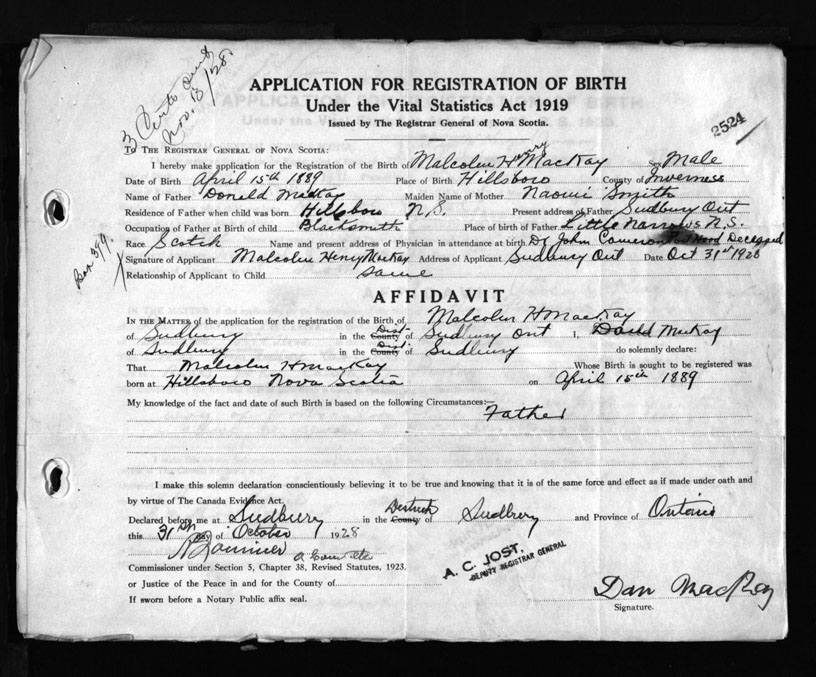 3 Certs Nov. 13/28.
APPLICATION FOR REGISTRATION OF BIRTH
Under the Vital Statistics Act 1919
Issued by The Registrar General of Nova Scotia.
2524
To The Registrar General of Nova Scotia:
I hereby make application for the Registration of the Birth of Malcolm Henry MacKay Sex Male
Date of Birth April 15th 1889 Place of Birth Hillsboro County of Inverness
Name of Father Donald MacKay Maiden Name of Mother Naomi Smith
Residence of Father when child was born Hillsboro N.S. Present address of Father Sudbury Ont
Occupation of Father at Birth of child Blacksmith Place of birth of Father Little Narrows N.S.
Race Scotch Name and present address of Physician in attendance at birth Dr John Cameron Deceased
Signature of Applicant Malcolm Henry MacKay Address of Applicant Sudbury Ont Date Oct 31st 1928
Relationship of Applicant to Child same
Box 399.
AFFIDAVIT
In the Matter of the application for the registration of the Birth of Malcolm H MacKay
of Sudbury in the County Dist. of Sudbury Ont I, MacKay
of Sudbury in the County Dist. of Sudbury do solemnly declare:
That Malcolm H MacKay Whose Birth is sought to be registered was
born at Hillsboro Nova Scotia on April 15th 1889
My knowledge of the fact and date of such Birth is based on the following Circumstances:—
Father
I make this solemn declaration conscientiously believing it to be true and knowing that it is of the same force and effect as if made under oath and
by virtue of The Canada Evidence Act.
Declared before me at Sudbury in the County District of Sudbury and Province of Ontario
this 31st day of October 1928
A. C. JOST,
DEPUTY REGISTRAR GENERAL
Commissioner under Section 5, Chapter 38, Revised Statutes, 1923.
or Justice of the Peace in and for the County of
If sworn before a Notary Public affix seal.
Dan MacKay
Signature.